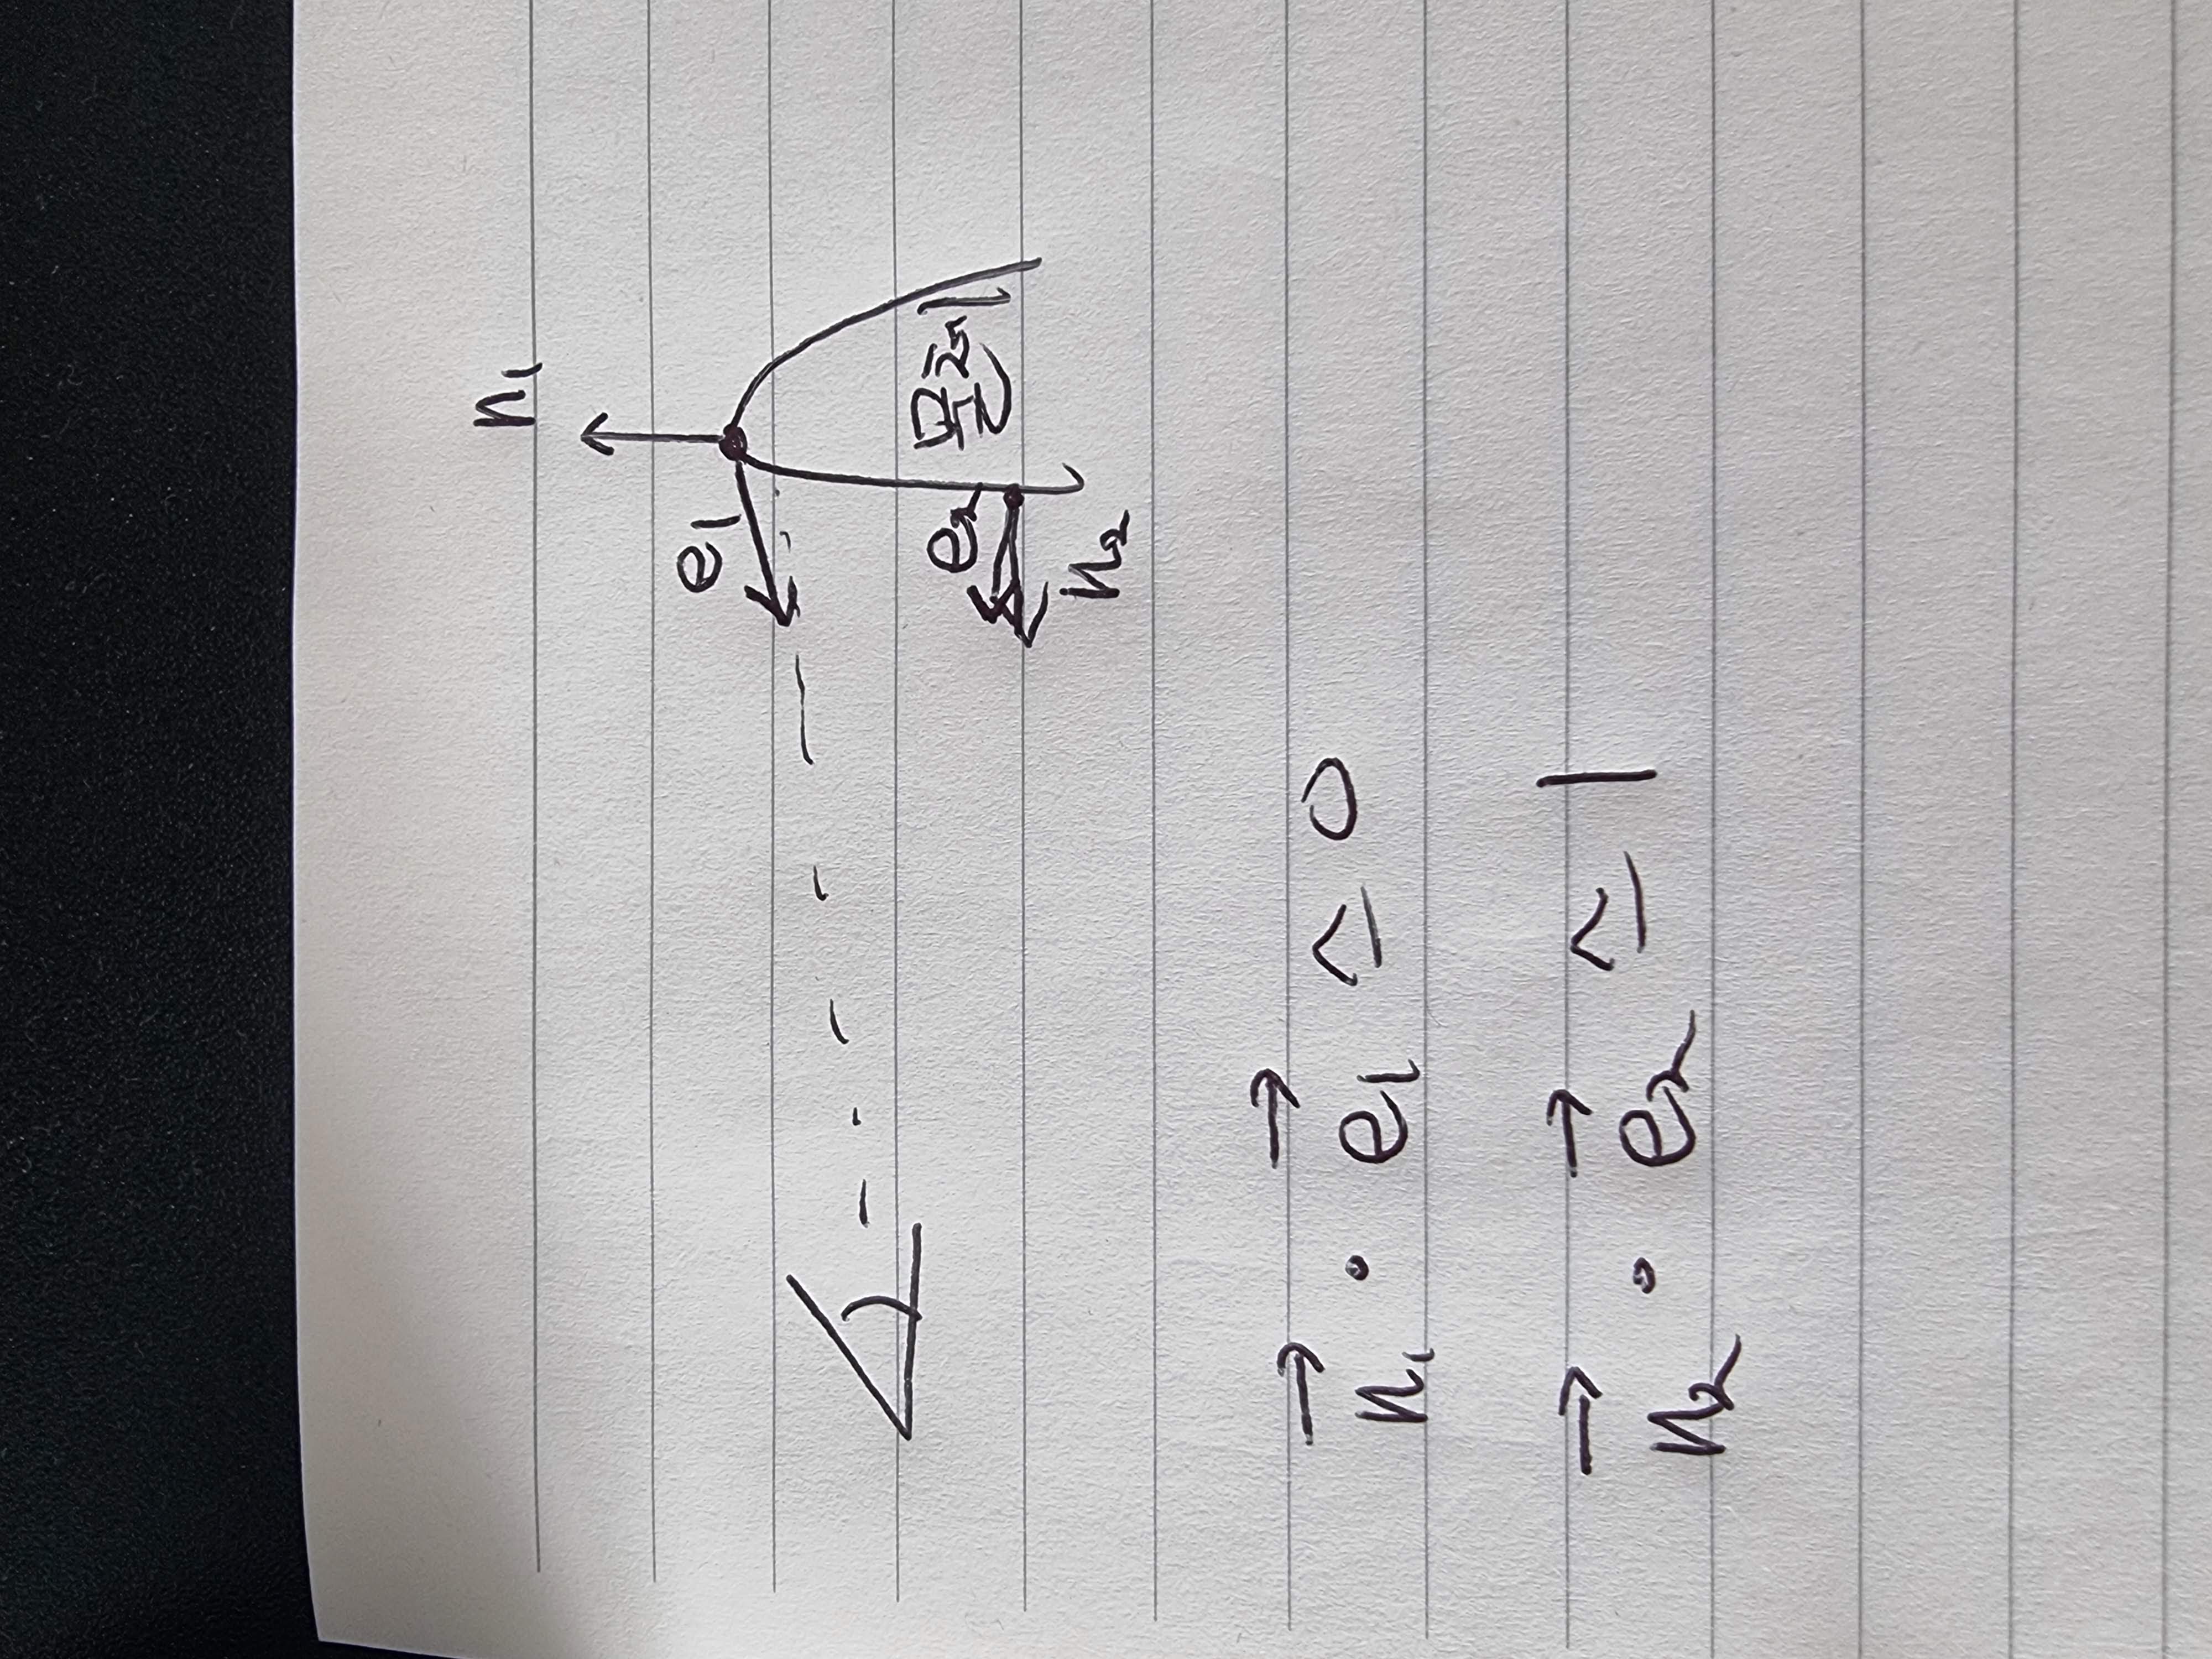 n₁
e₁
e₂ 물체
n₂
n₁ · e₁ ≃ 0
n₂ · e₂ ≃ 1